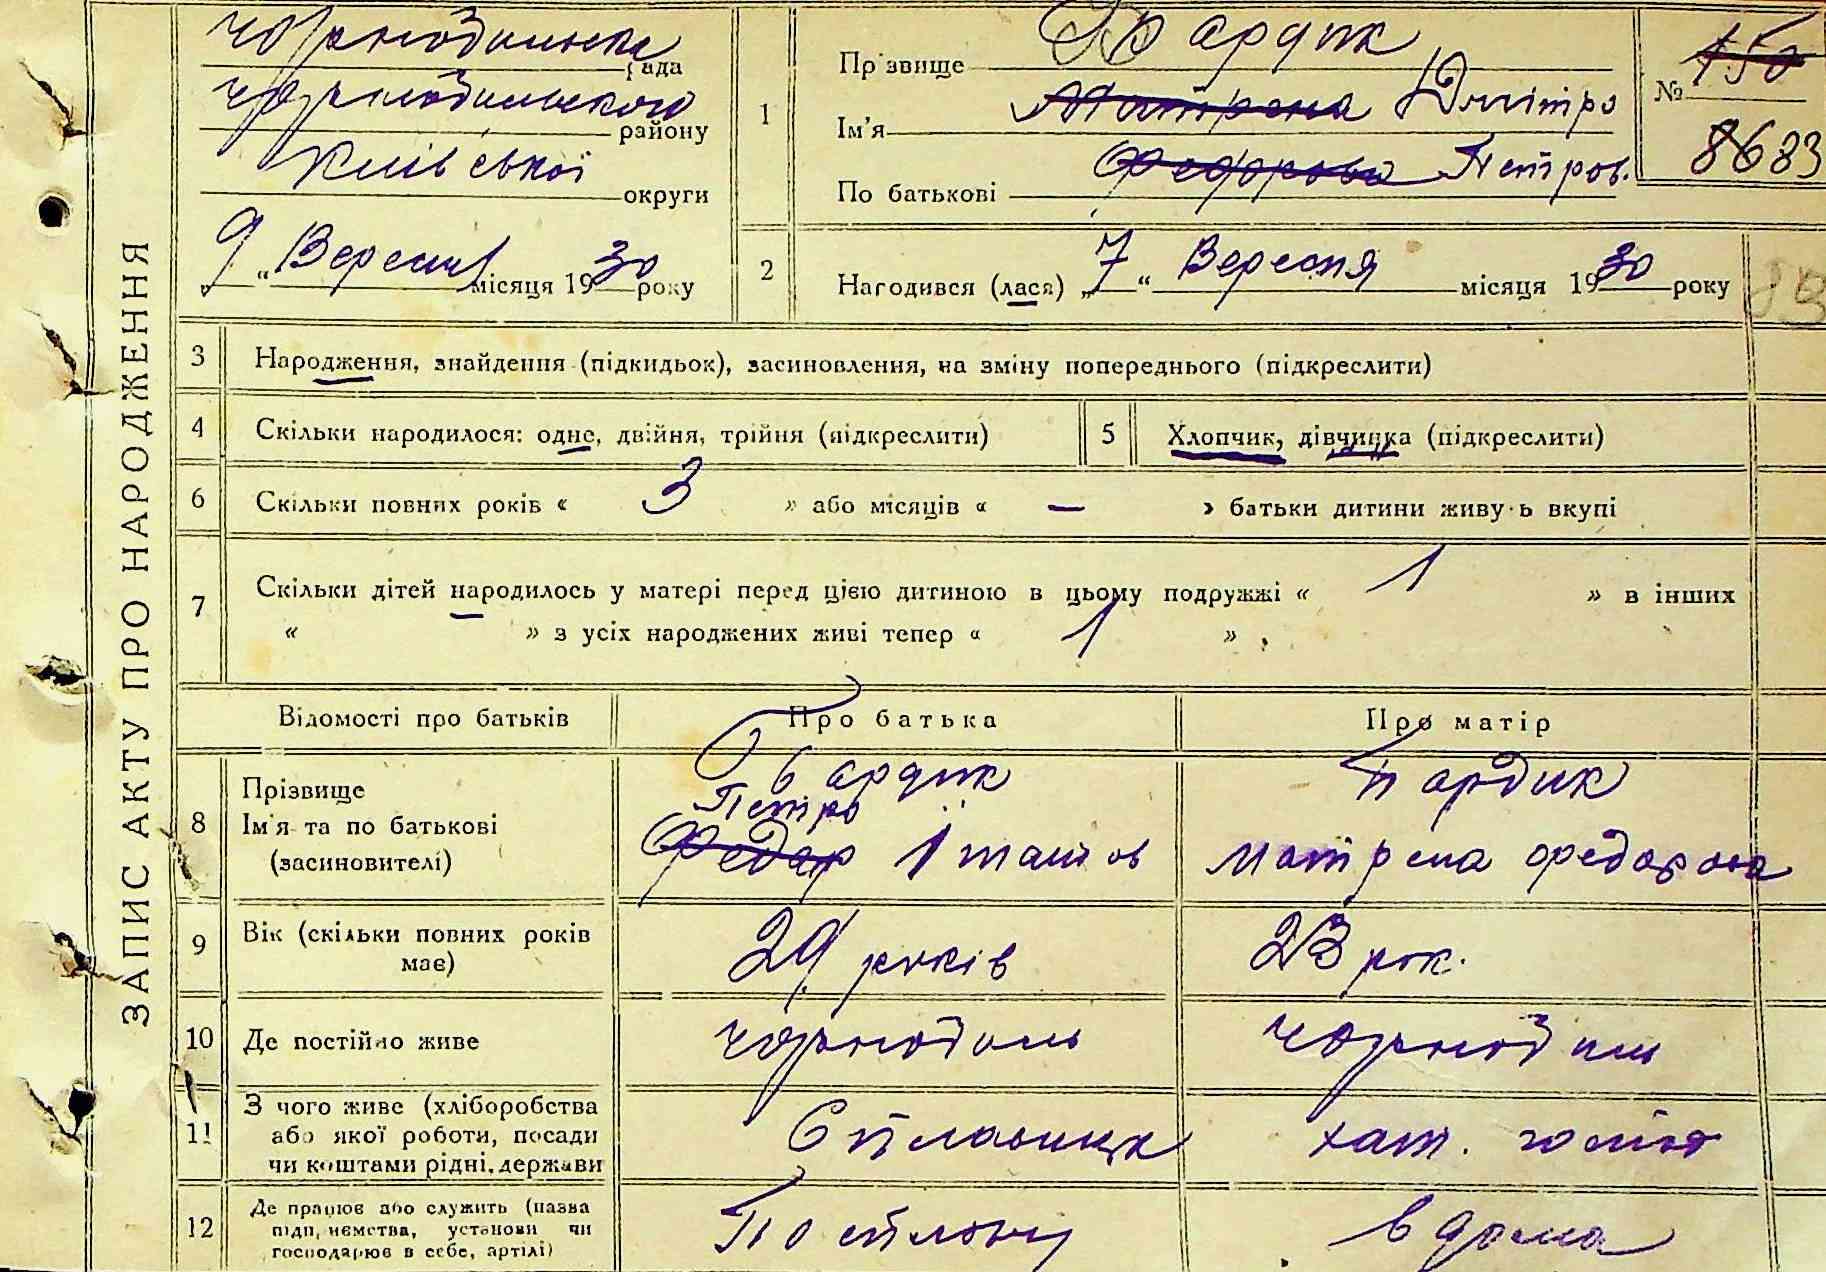 ЗАПИС АКТУ ПРО НАРОДЖЕННЯ
Чорнобильська рада
Чорнобильського району
Київської округи
„9“ Вересня місяця 1930 року
1
Прізвище
Ім'я Матрена Дмітро
По батькові Федорова Петров.
№ 150
8683
2
Народився (лася) „7“ Вересня місяця 1930 року
3 Народження, знайдення (підкидьок), засиновлення, на зміну попереднього (підкреслити)
4 Скільки народилося: одне, двійня, трійня (підкреслити)
5 Хлопчик, дівчинка (підкреслити)
6 Скільки повних років « 3 » або місяців « — » батьки дитини живуть вкупі
7 Скільки дітей народилось у матері перед цією дитиною в цьому подружжі « 1 » в інших
« » з усіх народжених живі тепер « 1 » .
Відомості про батьків Про батька Про матір
8 Прізвище
Ім'я та по батькові
(засиновителі)
Петро
Федар Ігнатов
Матрена Федорова
9 Вік (скільки повних років
має)
29 років
23 рок.
10 Де постійно живе
Чорнобиль
Чорнобиль
11 З чого живе (хліборобства
або якої роботи, посади
чи коштами рідні, держави
Сплавщик
хат.
12 Де працює або служить (назва
підприємства, установи чи
господарює в себе, артілі)
По сплову
в дома